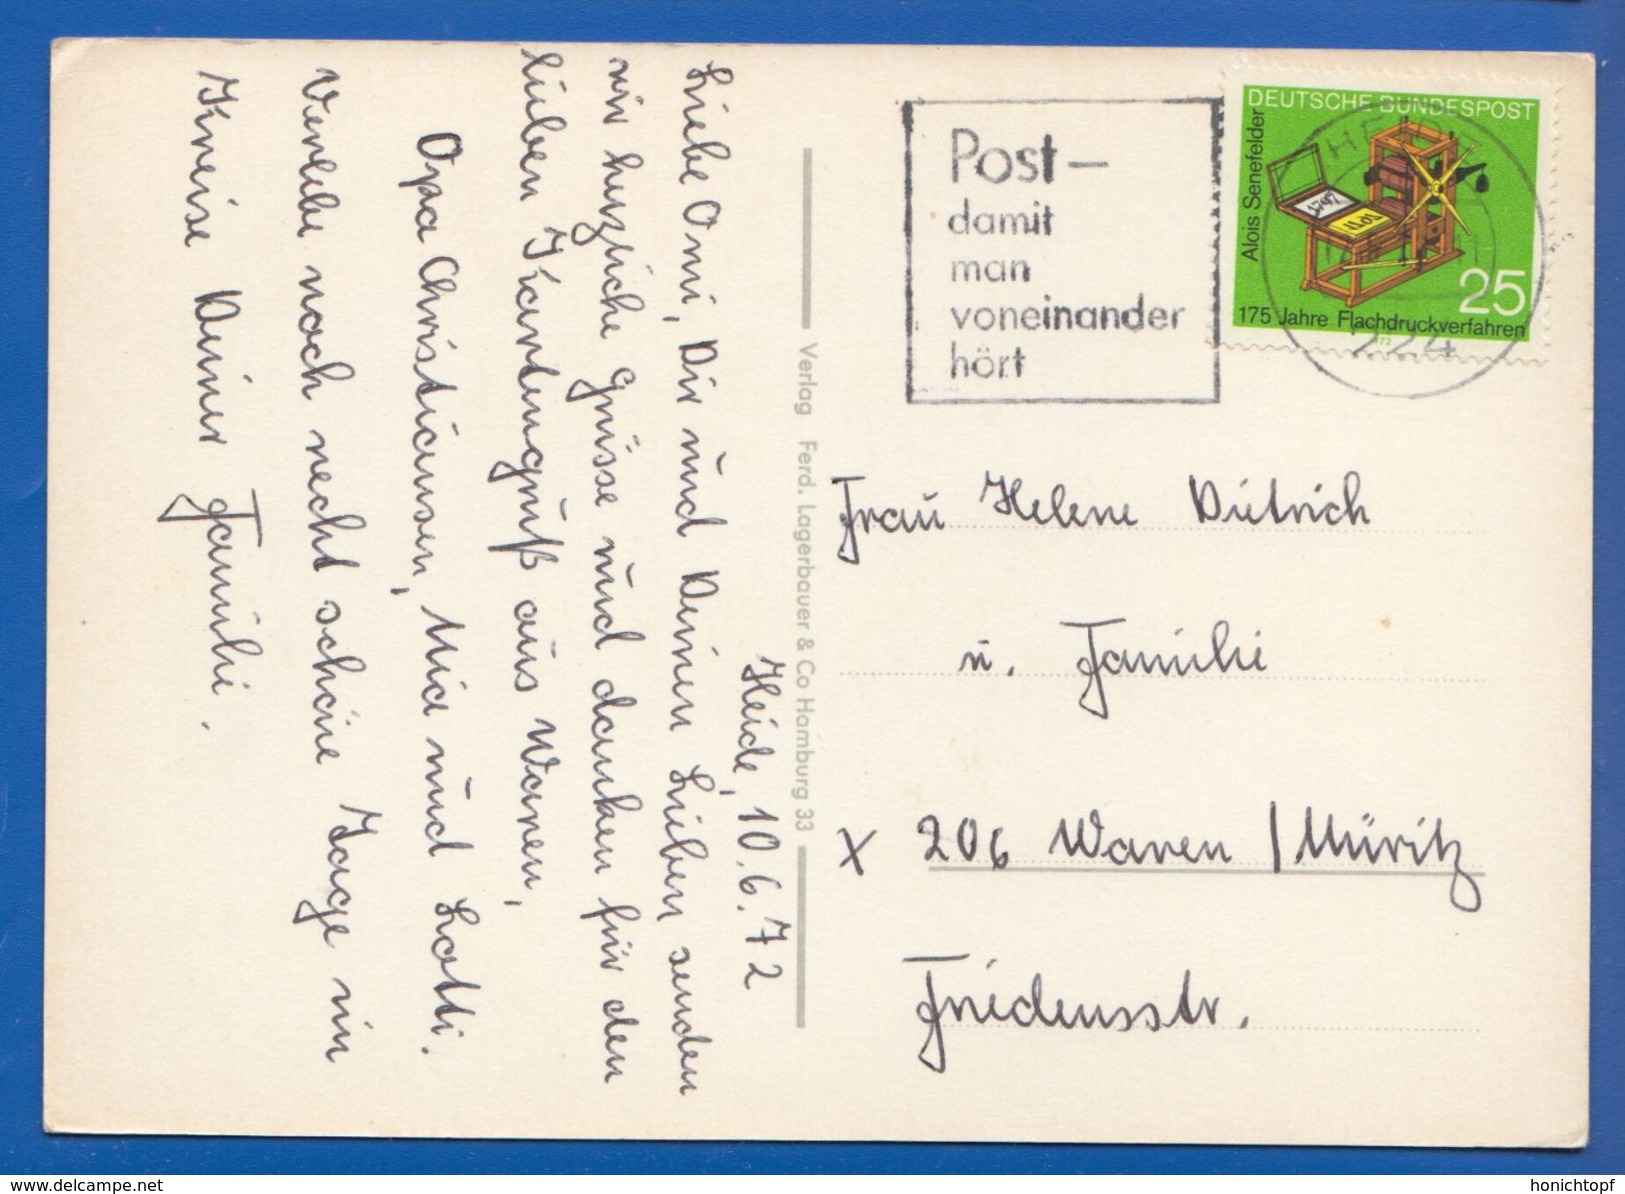 Heide, 10.6.72
Liebe Omi, Dir und Deinen Lieben senden
wir herzliche Grüsse und danken für den
lieben Kartengruß aus Waren,
Opa Christiansen, Mia und Lotti.
Verlebe noch recht schöne Tage im
Kreise Deiner Familie.
Verlag Ferd. Lagerbauer & Co Hamburg 33
Post –
damit
man
voneinander
hört
DEUTSCHE BUNDESPOST
Alois Senefelder
25
175 Jahre Flachdruckverfahren
HEIDE
224
Frau Helene Dietrich
u. Familie
X 206 Waren / Müritz
Friedensstr.
www.delcampe.net
honichtopf